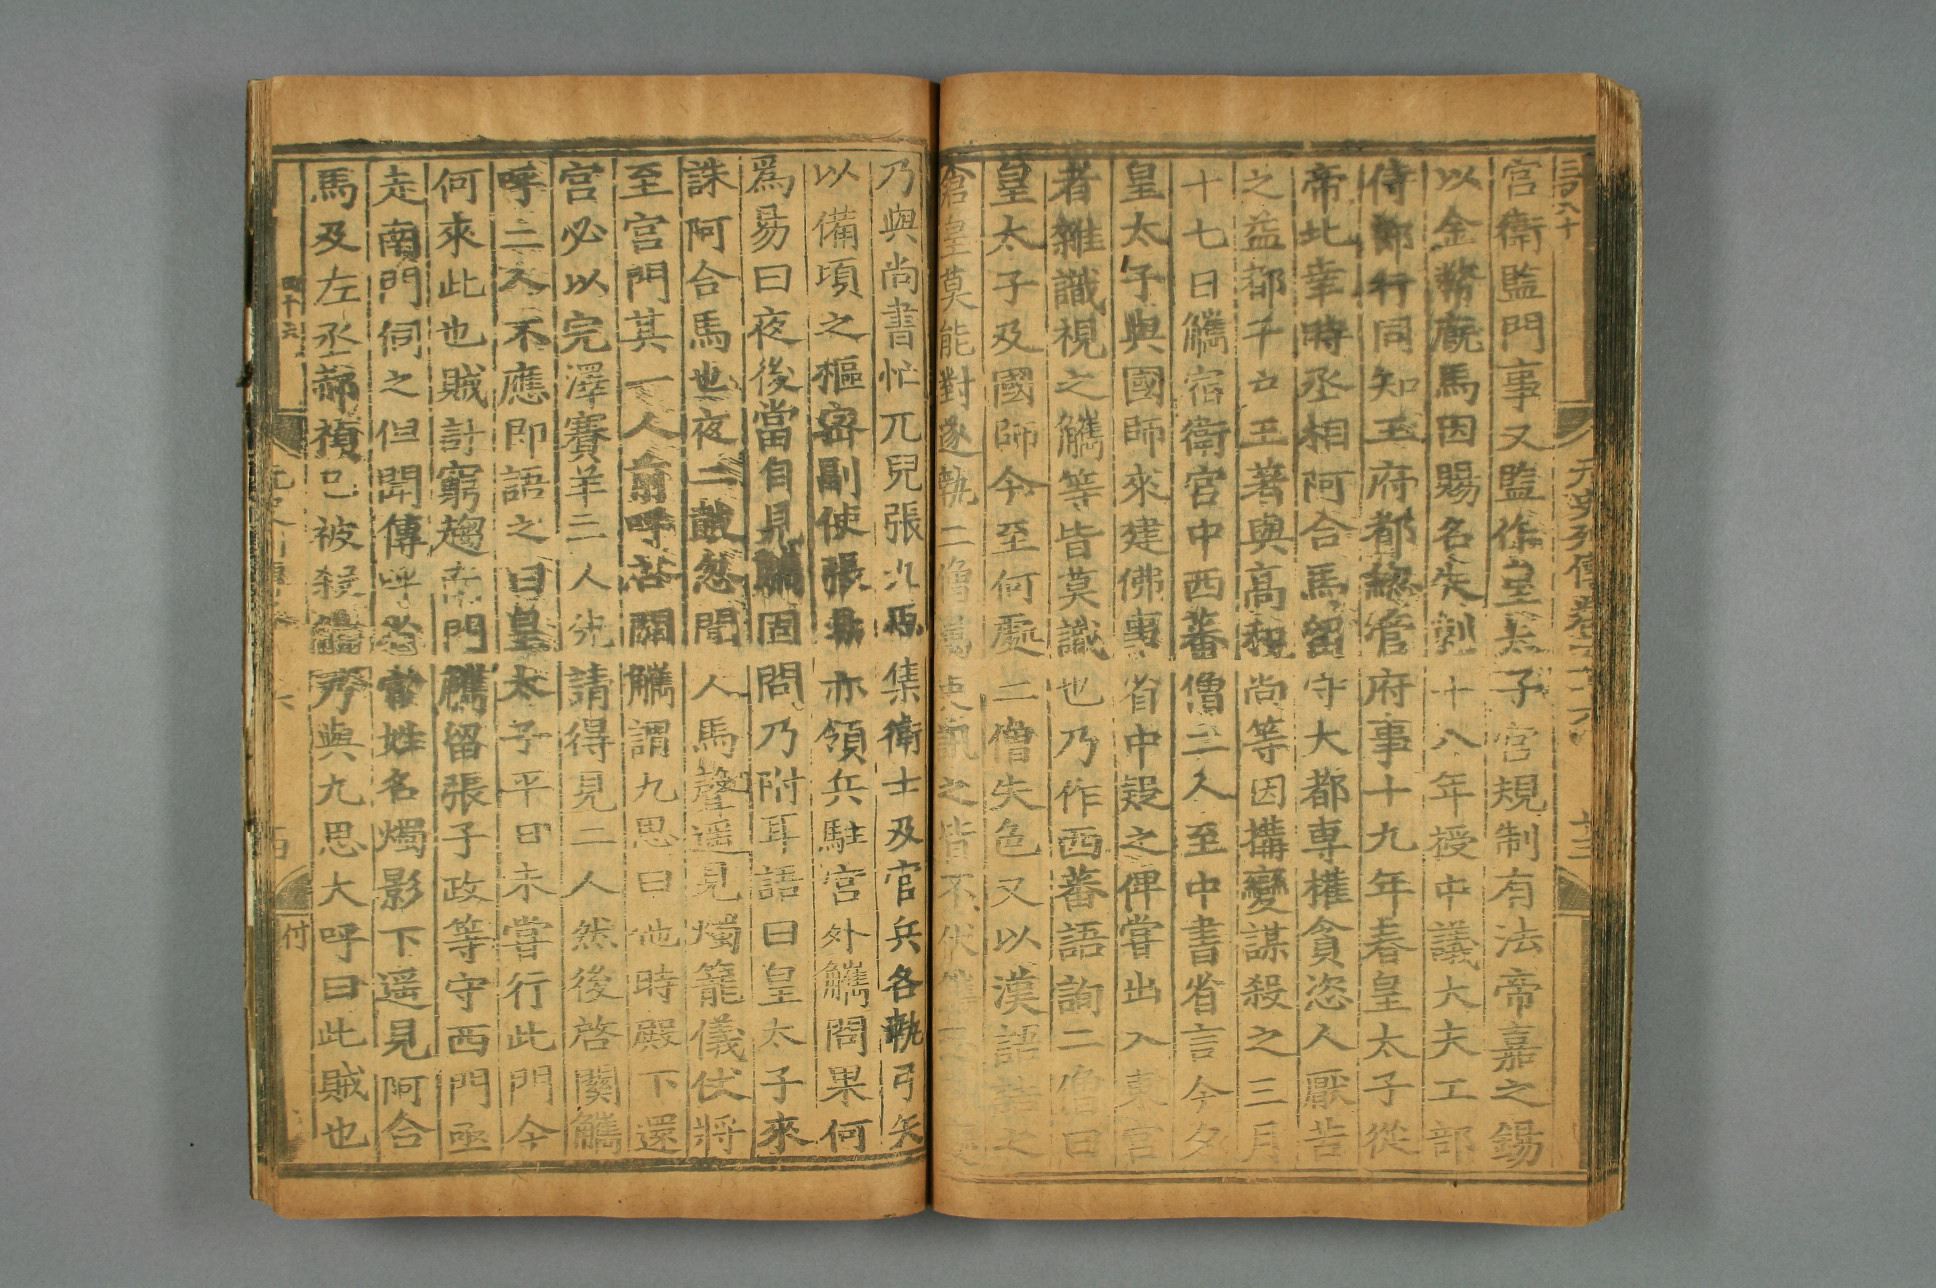 三百八十
元史列傳卷五十六
十三
宮衛監門事又監作皇太子宮規制有法帝嘉之錫
以金幣廐馬因賜名失剌十八年授中議大夫工部
侍郎行同知王府都緫管府事十九年春皇太子從
帝北幸時丞相阿合馬留守大都専權貪恣人厭苦
之益都千戶王著與高和尚等因搆變謀殺之三月
十七日觿宿衛宮中西蕃僧二人至中書省言今夕
皇太子與國師來建佛事省中疑之俾嘗出入東宮
者雜識視之觿等皆莫識也乃作西蕃語詢二僧曰
皇太子及國師今至何處二僧失色又以漢語詰之
倉皇莫能對遂執二僧屬吏訊之皆不伏觿
乃與尚書忙兀兒張九思集衛士及官兵各執弓矢
以備頃之樞密副使張易亦領兵駐宮外觿問果何
爲易曰夜後當自見觿固問乃附耳語曰皇太子來
誅阿合馬也夜二鼓忽聞人馬聲遥見燭籠儀仗將
至宮門其一人前呼啓關觿謂九思曰他時殿下還
宮必以完澤賽羊二人先請得見二人然後啓関觿
呼二人不應即語之曰皇太子平日未嘗行此門今
何來此也賊計窮趨南門觿留張子政等守西門亟
走南門伺之但聞傳呼省官姓名燭影下遥見阿合
馬及左丞郝禎已被殺觿乃與九思大呼曰此賊也
四十六
付